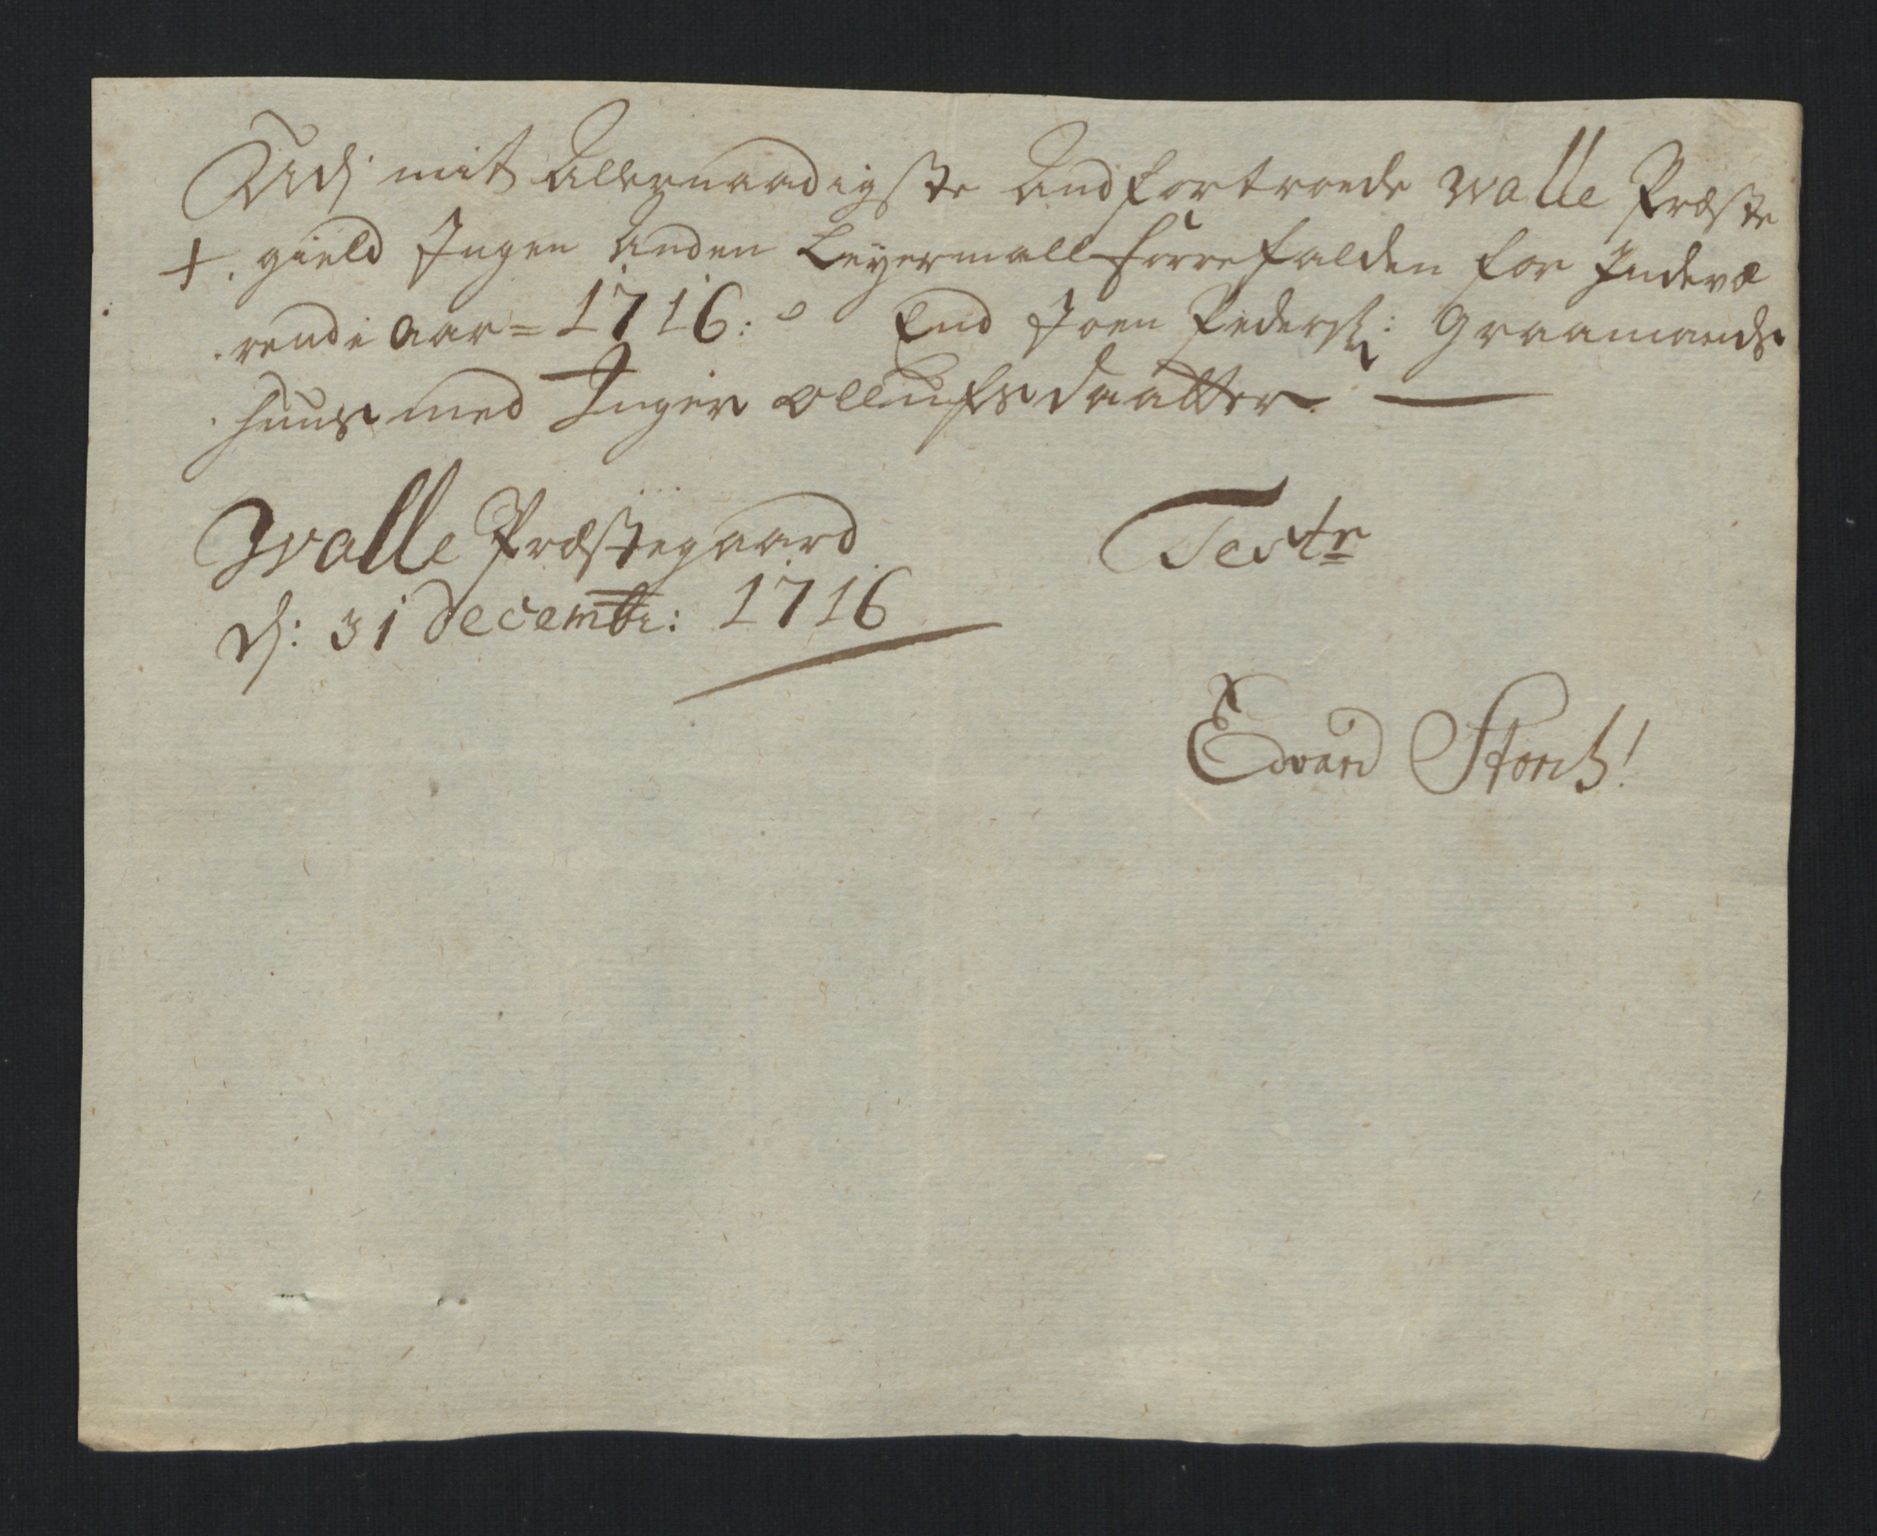 Udj mit Allernaadigste Andfortroede Walle Præste
+. gield Ingen Anden Leyermall forrefalden for Indevæ
rende Aar = 1716: End Joen Peders: Graamands
huus med Inger Ollufsdaatter. —
Walle Præstegaard
d: 31 decembr: 1716
Teste
Edvard Storch!